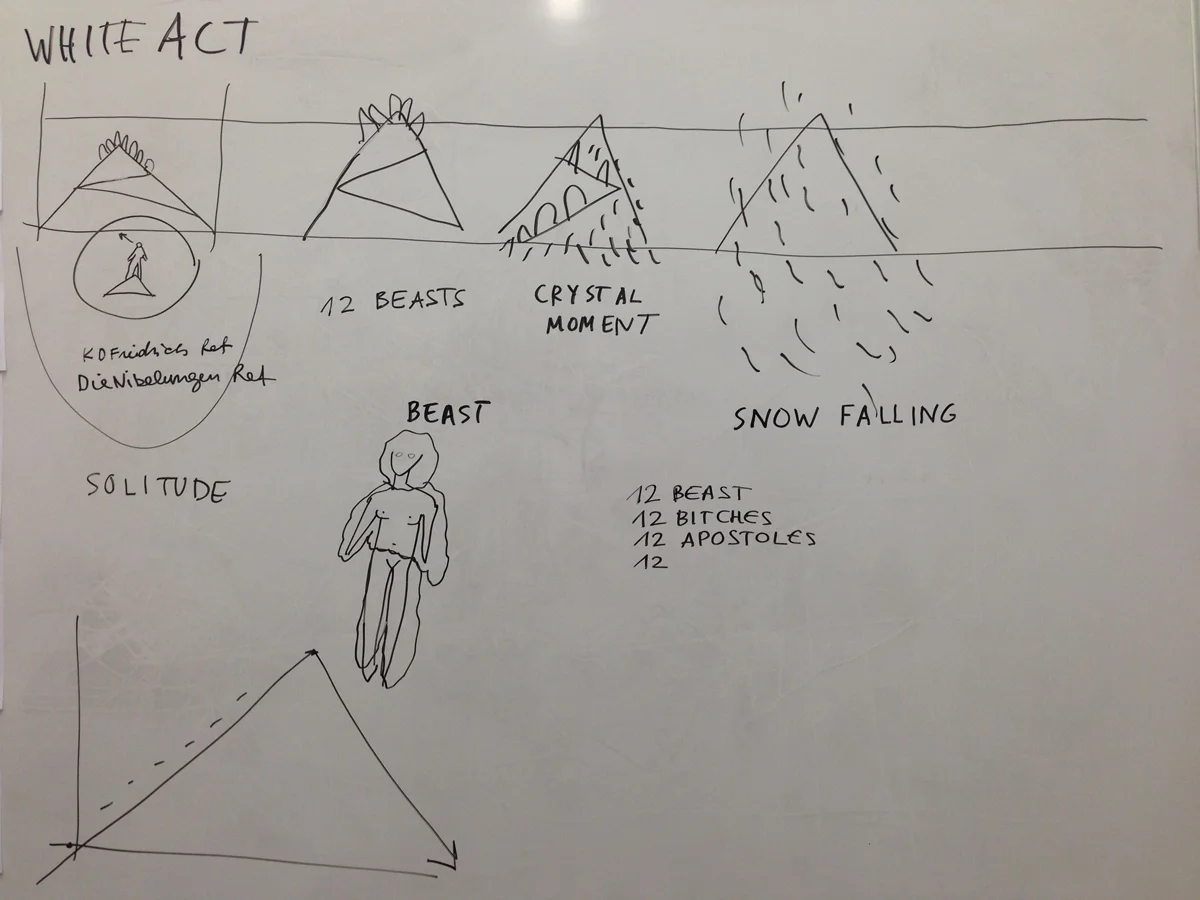 WHITE ACT
12 BEASTS
CRYSTAL
MOMENT
KDFriedrich Ref
Die Nibelungen Ref
SNOW FALLING
BEAST
SOLITUDE
12 BEAST
12 BITCHES
12 APOSTOLES
12